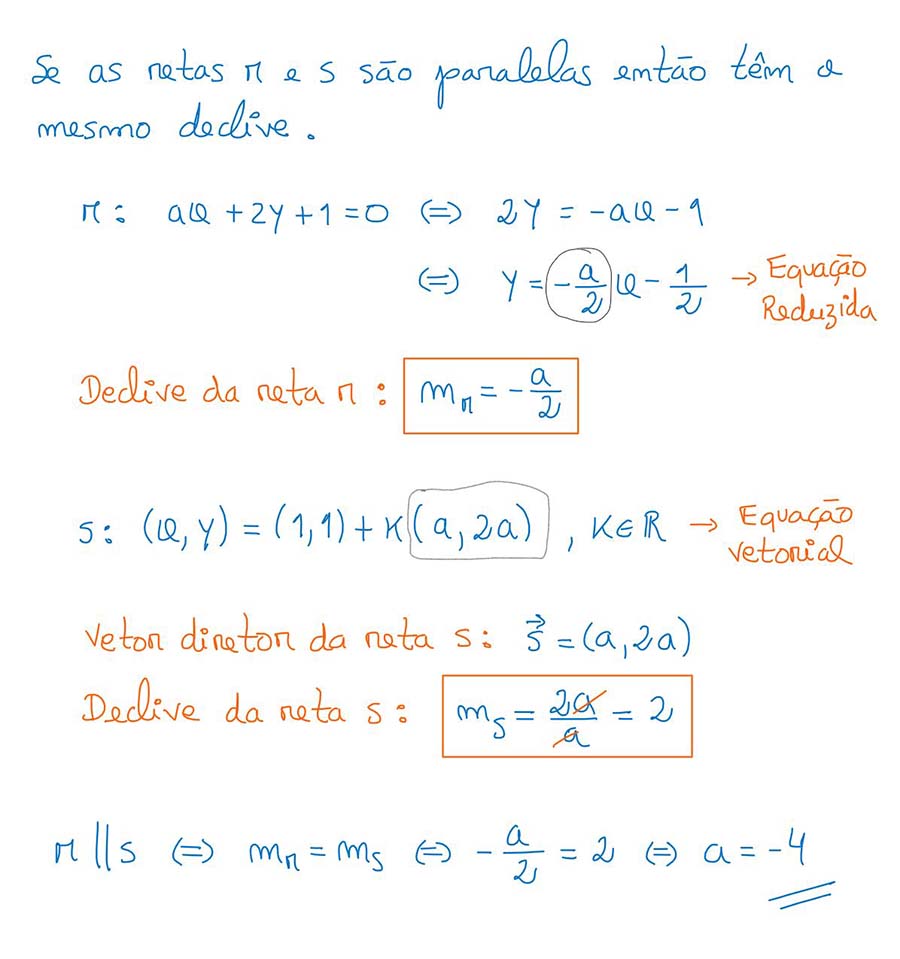 Se as retas r e s são paralelas então têm o
mesmo declive.
r: ax + 2y + 1 = 0 (=) 2y = -ax - 1
(=) y = -a/2 x - 1/2 → Equação
Reduzida
Declive da reta r: m_r = -a/2
s: (x, y) = (1,1) + K(a, 2a) , K∈R → Equação
vetorial
Vetor diretor da reta s: s⃗ = (a, 2a)
Declive da reta s: m_s = 2a/a = 2
r || s (=) m_r = m_s (=) -a/2 = 2 (=) a = -4